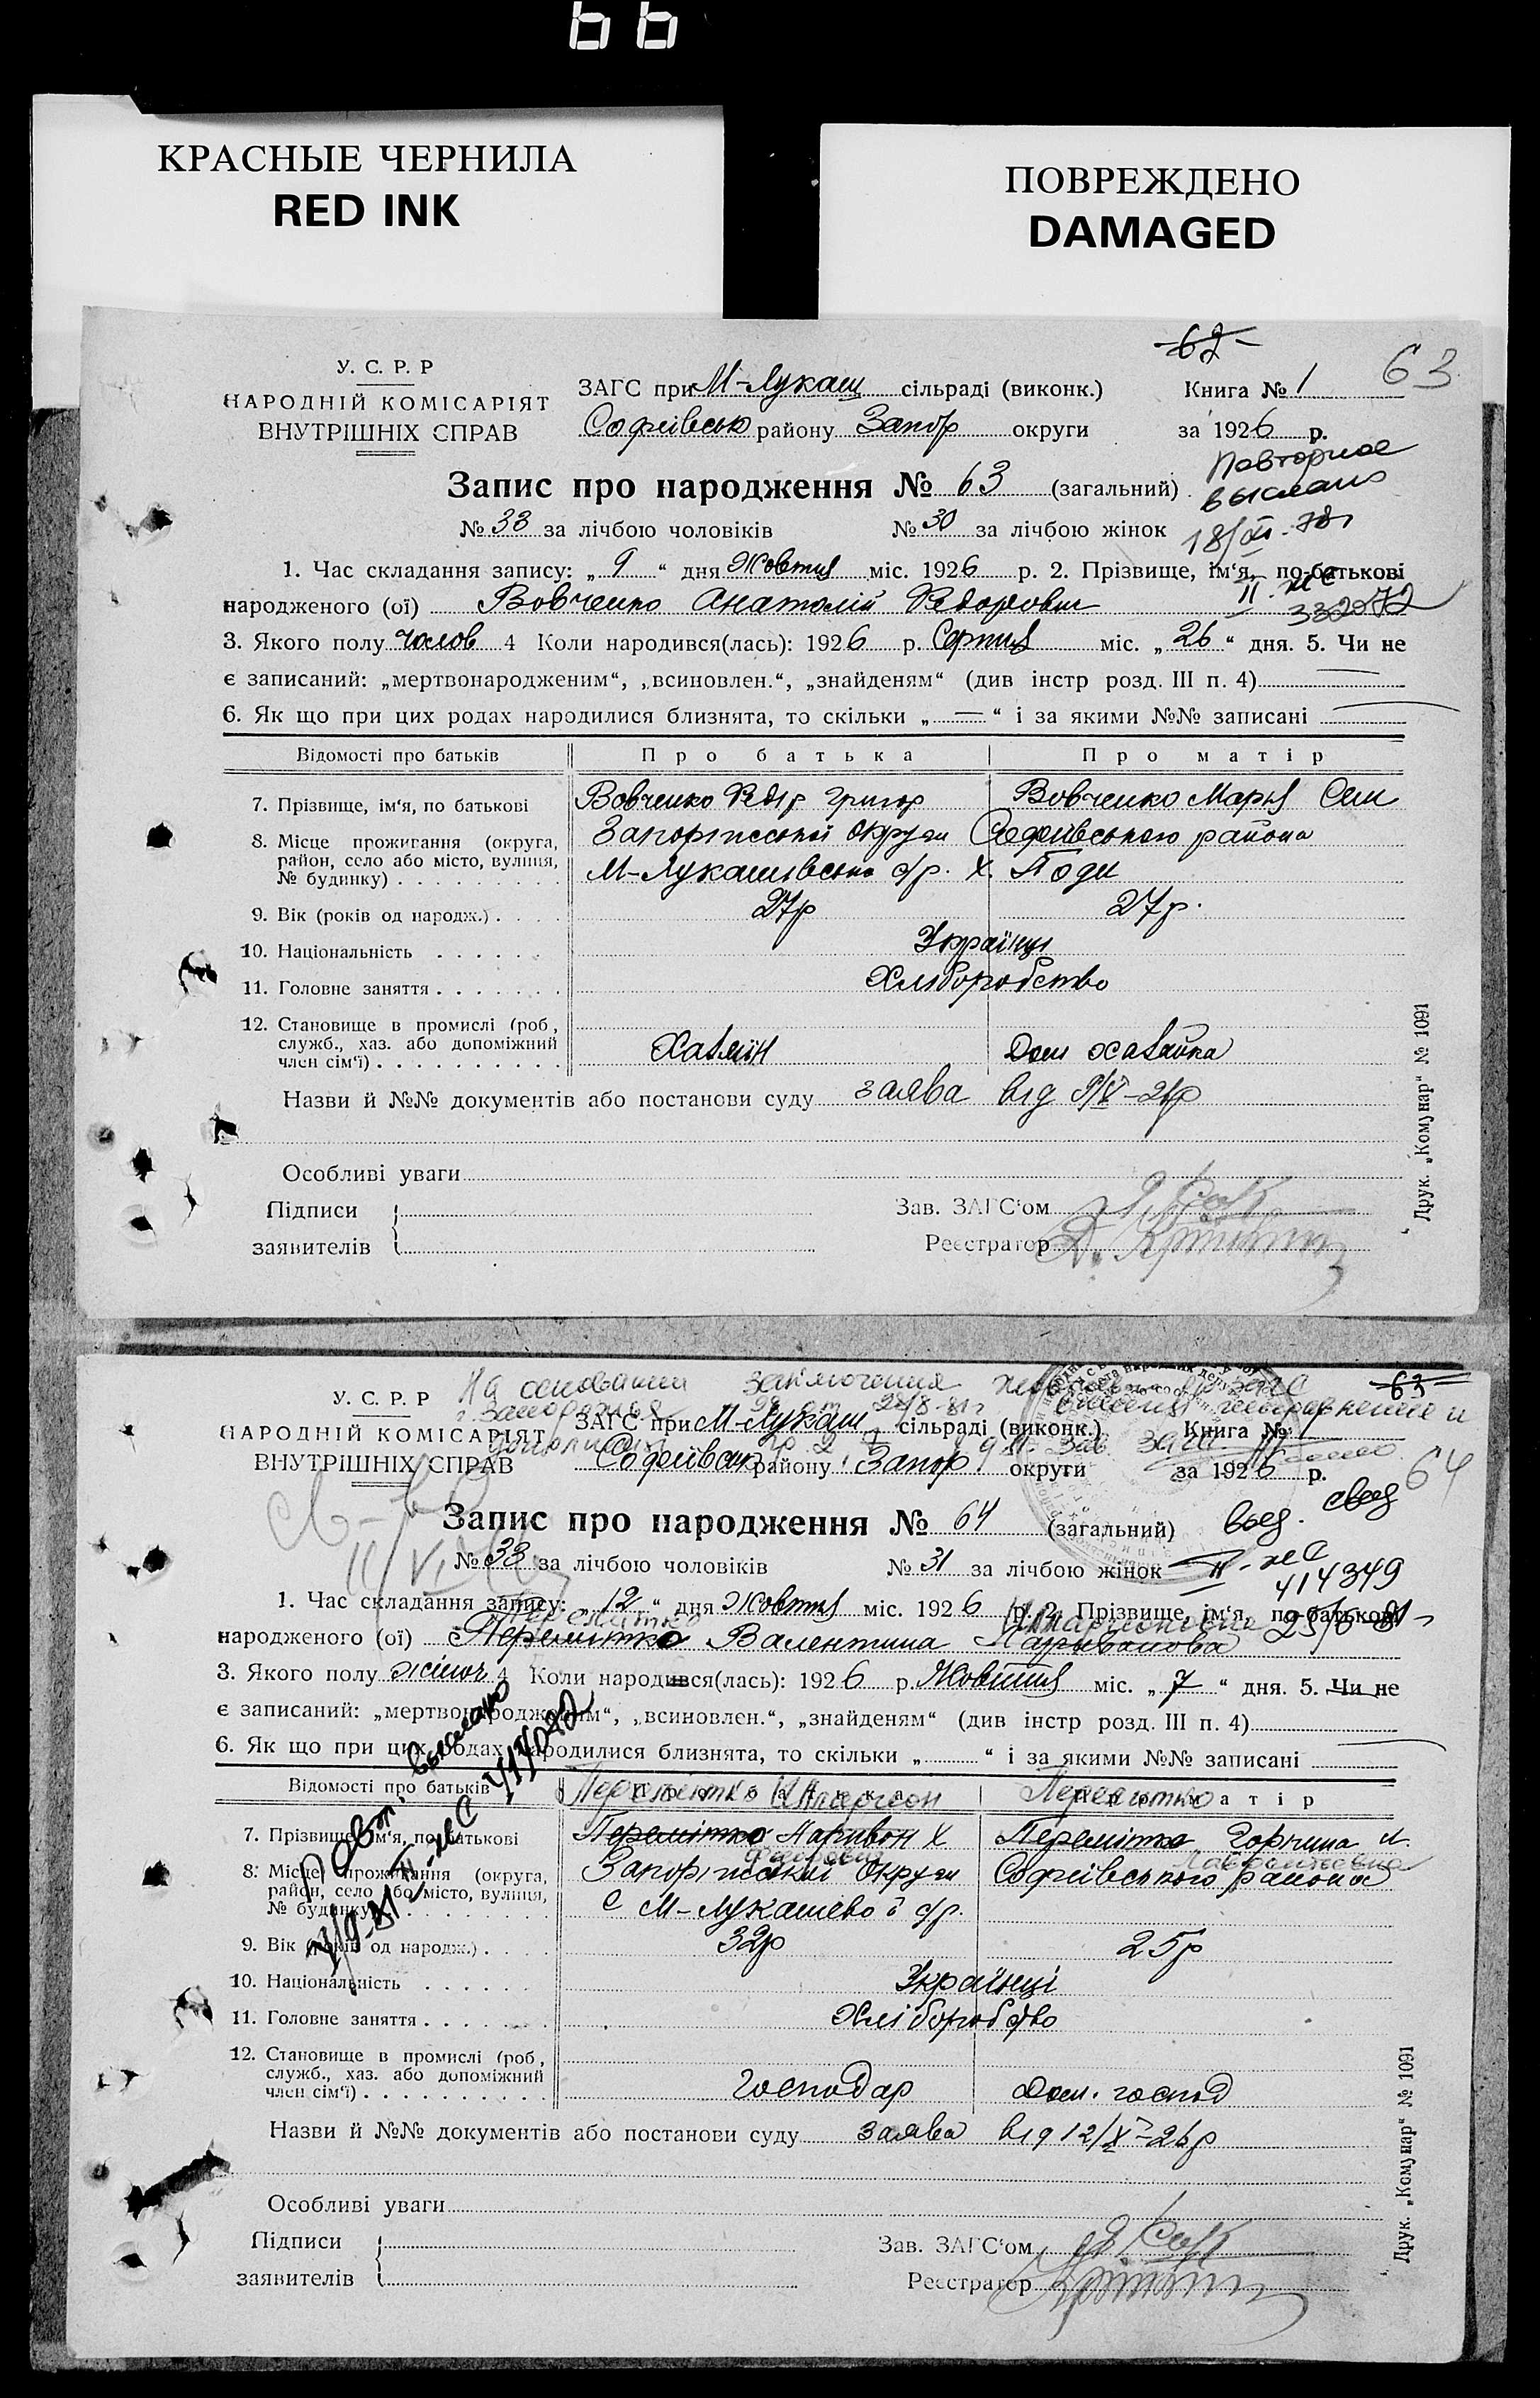 66
КРАСНЫЕ ЧЕРНИЛА
RED INK
ПОВРЕЖДЕНО
DAMAGED
62
63
У. С. Р. Р
НАРОДНІЙ КОМІСАРІЯТ
ВНУТРІШНІХ СПРАВ
ЗАГС при М-Лукаш сільраді (виконк.) Книга № 1
Софіївськ району Запор округи за 1926 р.
Повторное
выслано
Запис про народження № 63 (загальний)
№ 33 за лічбою чоловіків № 30 за лічбою жінок
1. Час складання запису: „ 9 “ дня Жовтня міс. 1926 р. 2. Прізвище, ім‘я, по-батькові
народженого (ої) Вовченко Анатолій Федорович
332072
3. Якого полу чолов 4 Коли народився(лась): 1926 р. Серпня міс. „ 26 “ дня. 5. Чи не
є записаний: „мертвонародженим“, „всиновлен.“, „знайденям“ (див інстр розд. III п. 4)
6. Як що при цих родах народилися близнята, то скільки „ — “ і за якими №№ записані
Відомості про батьків Про батька Про матір
7. Прізвище, ім‘я, по батькові Вовченко Федір Григор Вовченко Марья Сем
8. Місце прожигання (округа, район, село або місто, вулиця, № будинку) Запоріжської округи Софіївського района
М-Лукашівська с/р. х. Поди
9. Вік (років од народж.) 27р 27р.
10. Національність Українці
11. Головне заняття Хліборобство
12. Становище в промислі (роб, служб., хаз. або допоміжний член сім‘ї) Хазяїн Дом хазяйка
Назви й №№ документів або постанови суду заява від 9/X-26р
Особливі уваги
Підписи
заявителів
Зав. ЗАГС‘ом
Реєстратор
Друк. „Комунар“ № 1091
63
64
На основании заключения
г. Запорожья
У. С. Р. Р
НАРОДНІЙ КОМІСАРІЯТ
ВНУТРІШНІХ СПРАВ
ЗАГС при М-Лукаш сільраді (виконк.) Книга № 1
Софіївськ району Запор. округи за 1926 р.
Запис про народження № 64 (загальний)
выд. свид
№ 33 за лічбою чоловіків № 31 за лічбою жінок
414349
1. Час складання запису: 12 “ дня Жовтня міс. 1926 р. 2. Прізвище, ім‘я, по-батькові
народженого (ої) Перемітко Валентина
3. Якого полу жіноч 4 Коли народився(лась): 1926 р. Жовтня міс. „ 7 “ дня. 5. Чи не
є записаний: „мертвонародженим“, „всиновлен.“, „знайденям“ (див інстр розд. III п. 4)
6. Як що при цих родах народилися близнята, то скільки „ “ і за якими №№ записані
Відомості про батьків Про батька Про матір
7. Прізвище, ім‘я, по батькові Перемітко Х Перемітко Горпина Л.
8. Місце прожигання (округа, район, село або місто, вулиця, № будинку) Запоріжської округи Софіївського района
с М-Лукашево ї с/р.
9. Вік (років од народж.) 32р 25р
10. Національність Українці
11. Головне заняття Хліборобство
12. Становище в промислі (роб, служб., хаз. або допоміжний член сім‘ї) господар дом. господ
Назви й №№ документів або постанови суду заява від 12/X-26р
Особливі уваги
Підписи
заявителів
Зав. ЗАГС‘ом
Реєстратор
Друк. „Комунар“ № 1091